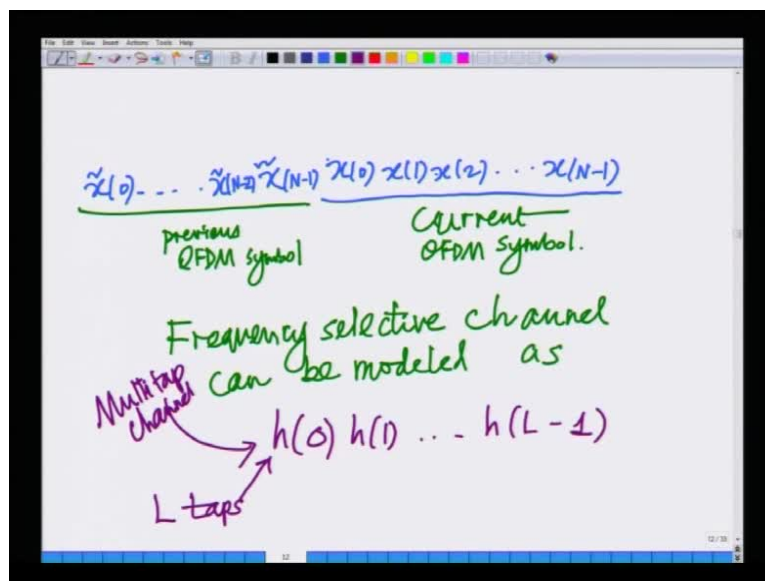 File Edit View Insert Actions Tools Help
x̃(0) - - . . x̃(N-2) x̃(N-1) x(0) x(1) x(2) . . . x(N-1)
previous OFDM symbol
Current OFDM symbol.
Frequency selective channel
can be modeled as
Multitap channel
h(0) h(1) . . - h(L-1)
L taps
12